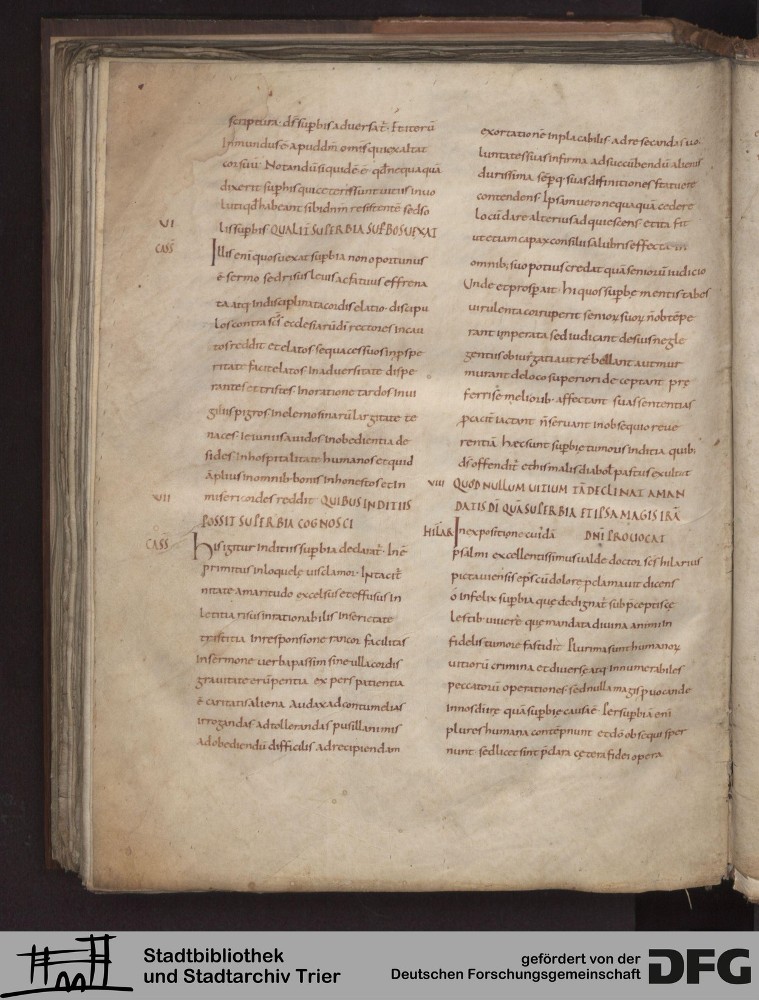 scriptura· ds̄ supbis adversat̄· Et iterū
Inmundus ē apud dm̄ omīs qui exaltat
cor suū· Notandū siquidē ē qd̄ nequaquā
dixerit supbis qui ceteris sunt uitiis inuo
luti qd̄ habeant sibi dn̄m resistentē sed so
VI
lis supbis· QUALIT̄ SUPERBIA SUPBOS UEXAT
CASS̄
Illis eni quos uexat supbia non oportunus
ē sermo sed risus leuis ac fatuus effrena
ta atq indisciplinata cordis elatio· discipu
los contra sc̄s ecclesiarū dī rectores incau
tos reddit et elatos sequaces suos in pspe
ritate facit elatos In aduersitate dispe
rantes et tristes In oratione tardos In ui
giliis pigros in elemosinarū largitate te
naces· Ieiuniis auidos In obedientia de
sides In hospitalitate humanos et quid
āplius in omnib bonis inhonestos et in
VII
misericordes reddit· QUIBUS INDITIIS
POSSIT SUPERBIA COGNOSCI
CASS̄
His igitur inditiis supbia declarat̄· Inē
primitus in loquelę uis clamor· In tacit̄
nitate amaritudo excelsus et effusus in
letitia risus inrationabilis In seriet ate
tristitia In responsione rancor facilitas
In sermone uerba passim sine ulla cordis
grauitate erūpentia expers patientia
ē caritatis aliena Audax ad contumelias
irrogandas ad tollerandas pusillanimis
ad obediendū difficilis ad recipiendam
exortationē inplacabilis· ad resecandas uo
luntates suas infirma ad succūbendū alienis
durissima sēpq suas difinitiones statuere
contendens· Ipsam uero nequaquā cedere
locū dare alterius adquiescens· et ita fit
ut etiam capax consilii salubris effecta· in
omnib; suo potius credat quā seniorū iudicio
Unde et prosp ait· hi quos supbę mentis tabes
uirulenta corruperit senioȝ suoȝ n̄ obtēpe
rant imperata sed iudicant desuis negle
gentiis obiurgati aut rebellant aut mur
murant de loco superiori deceptant prę
ferri sē melioub· affectant suas sententias
pcacit̄ iactant n̄ seruant in obsequio reue
rentiā hęc sunt supbię tumoris inditia quib;
ds̄ offendit̄ et his malis diabol pastus exultat
VIII
QUOD NULLUM UITIUM TĀ DECLINAT A MAN
DATIS DĪ QUĀ SUPERBIA ET IPSA MAGIS IRĀ
DNĪ PROUOCAT
HILAR
In expositione cuidā
psalmi excellentissimus ualde doctor sc̄s hilarius
pictauiensis epsc̄u dolore pclamauit dicens
ó infelix supbia quę dedignat̄ sub pceptis cę
lestib uiuere quę mandata diuina animi in
fidelis tumore fastidit Plurima sunt humanoȝ
uitiorū crimina et diuerse atq innumerabiles
peccatorū operationes· sed nulla magis puocande
in nos dirę quā supbię causa ē· Per supbiā eni
plures humana contēpnunt et dō obsequi sper
nunt sed licet sint pclara cętera fidei opera
Stadtbibliothek
und Stadtarchiv Trier
gefördert von der
Deutschen Forschungsgemeinschaft
DFG